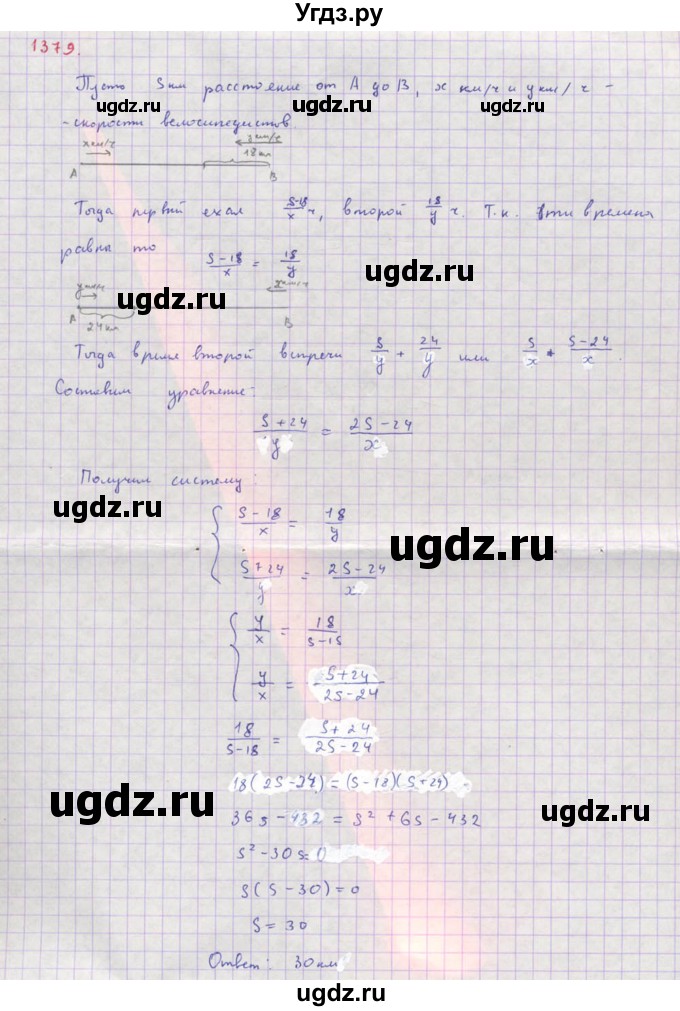 Угдз.ру
1379.
Пусть S км расстояние от A до B, x км/ч и y км/ч -
- скорости велосипедистов.
x км/ч 18 км
A B
Тогда первый ехал S-18/x ч, второй 18/y ч. Т.к. эти времена
равны то S-18/x = 18/y
y км/ч x км/ч
A 24 км B
Тогда время второй встречи S/y + 24/y или S/x + S-24/x
Составим уравнение:
S+24/y = 2S-24/x
Получим систему:
{ S-18/x = 18/y
S+24/y = 2S-24/x
{ y/x = 18/S-18
y/x = S+24/2S-24
18/S-18 = S+24/2S-24
18(2S-24)=(S-18)(S+24)
36S-432 = S²+6S-432
S²-30S=0
S(S-30)=0
S=30
Ответ: 30 км
ugdz.ru
ugdz.ru
ugdz.ru
ugdz.ru
ugdz.ru
ugdz.ru
ugdz.ru
ugdz.ru
ugdz.ru
ugdz.ru
ugdz.ru
ugdz.ru
ugdz.ru